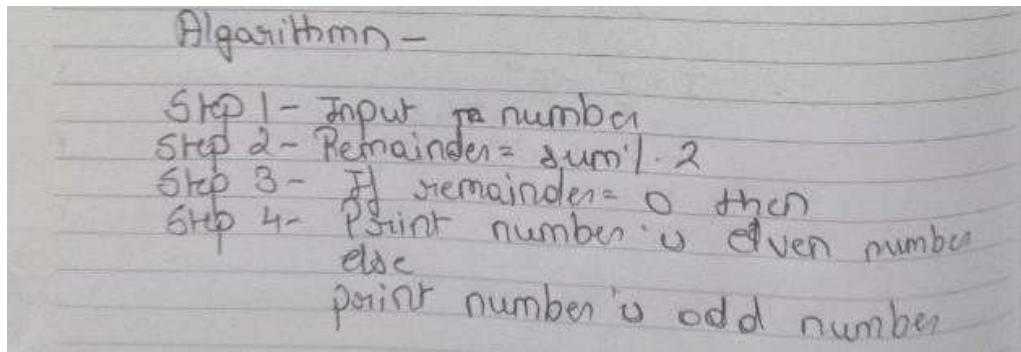 Algarithmn -
Step 1 - Input number
Step 2 - Remainder = sum % 2
Step 3 - If remainder = 0 then
Step 4 - Print number is even number
else
print number is odd number